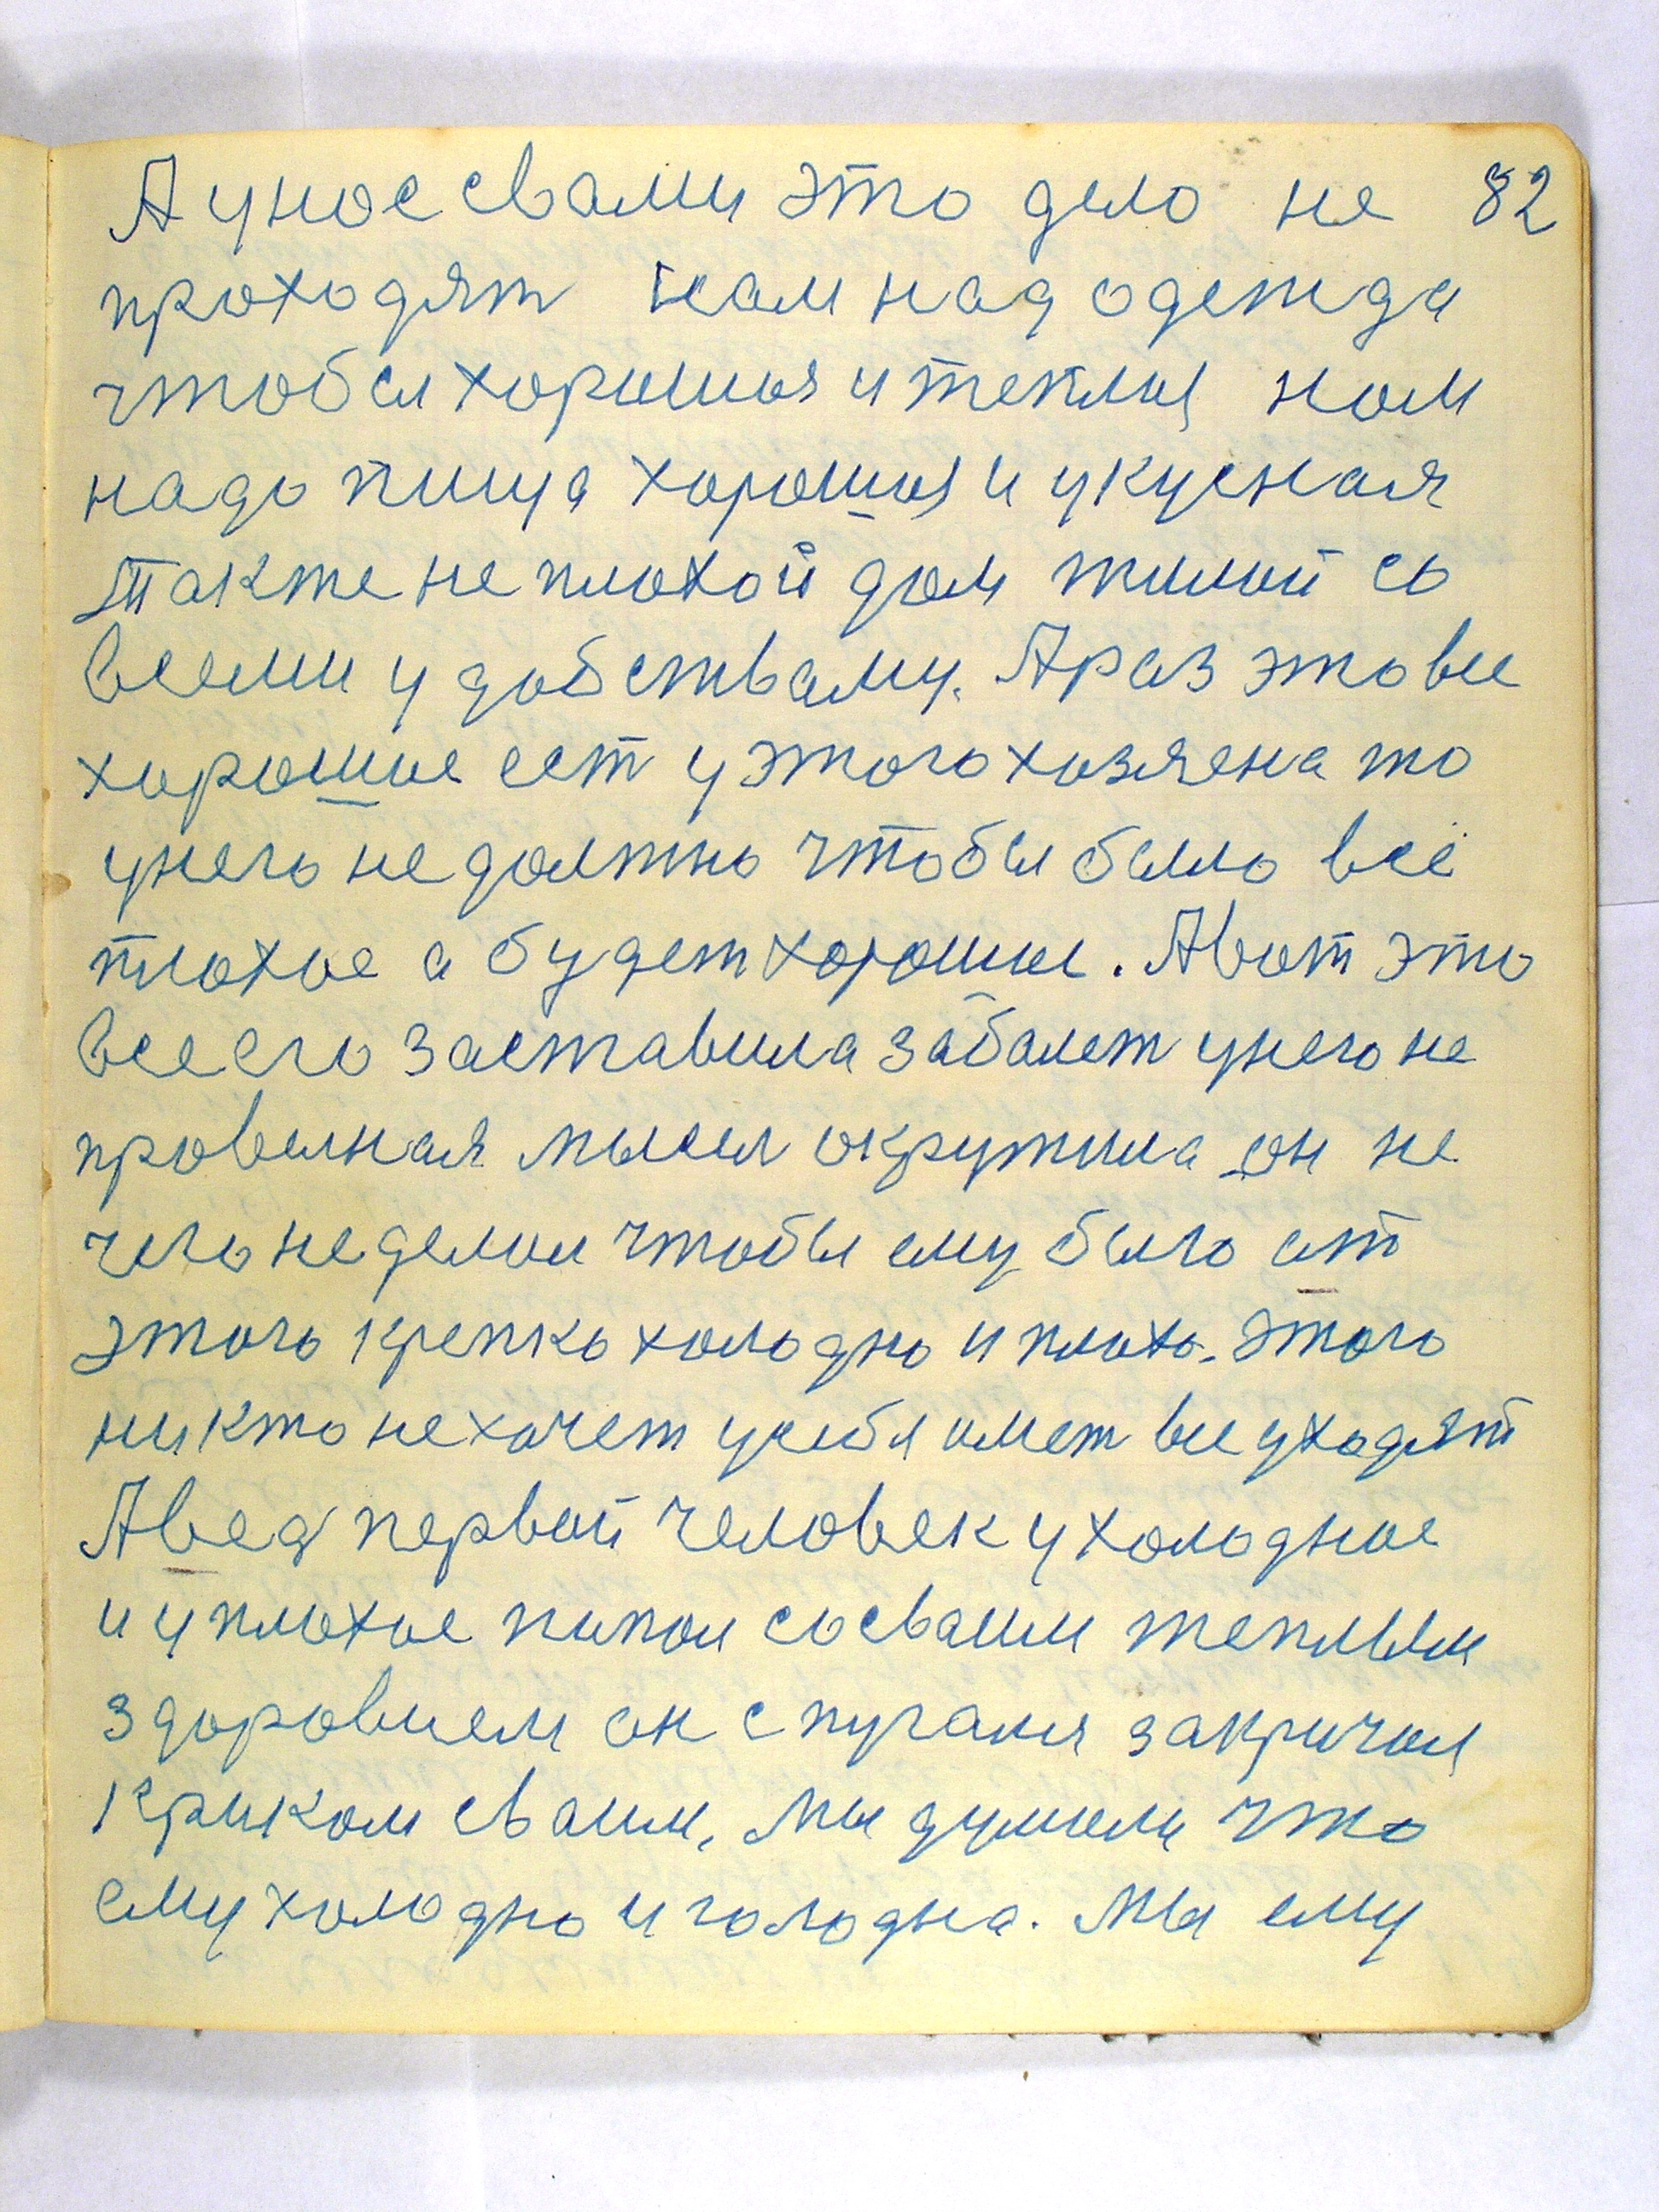 А унос свами это дело не 82
проходят нам над одежда
чтобы хорошыя и теплыя ном
надо пища хорошыя и укусная
также не плохой дом жилой со
всеми удобствами. А раз это все
хорошое ест у этого хозяена то
унего не должно чтобы было всё
плохое а будет хорошое. А вот это
все его заставила заболет унего не
провелная мысел окружила он не
чего не делол чтобы ему было от
этого крепко холодно и плохо. этого
никто не хочет усебя имет все уходят
А вед первой человек у холодное
и у плохое попол сосваим теплым
здоровием он спугался закричал
криком сваим, мы думоли что
ему холодно и голодна. мы ему